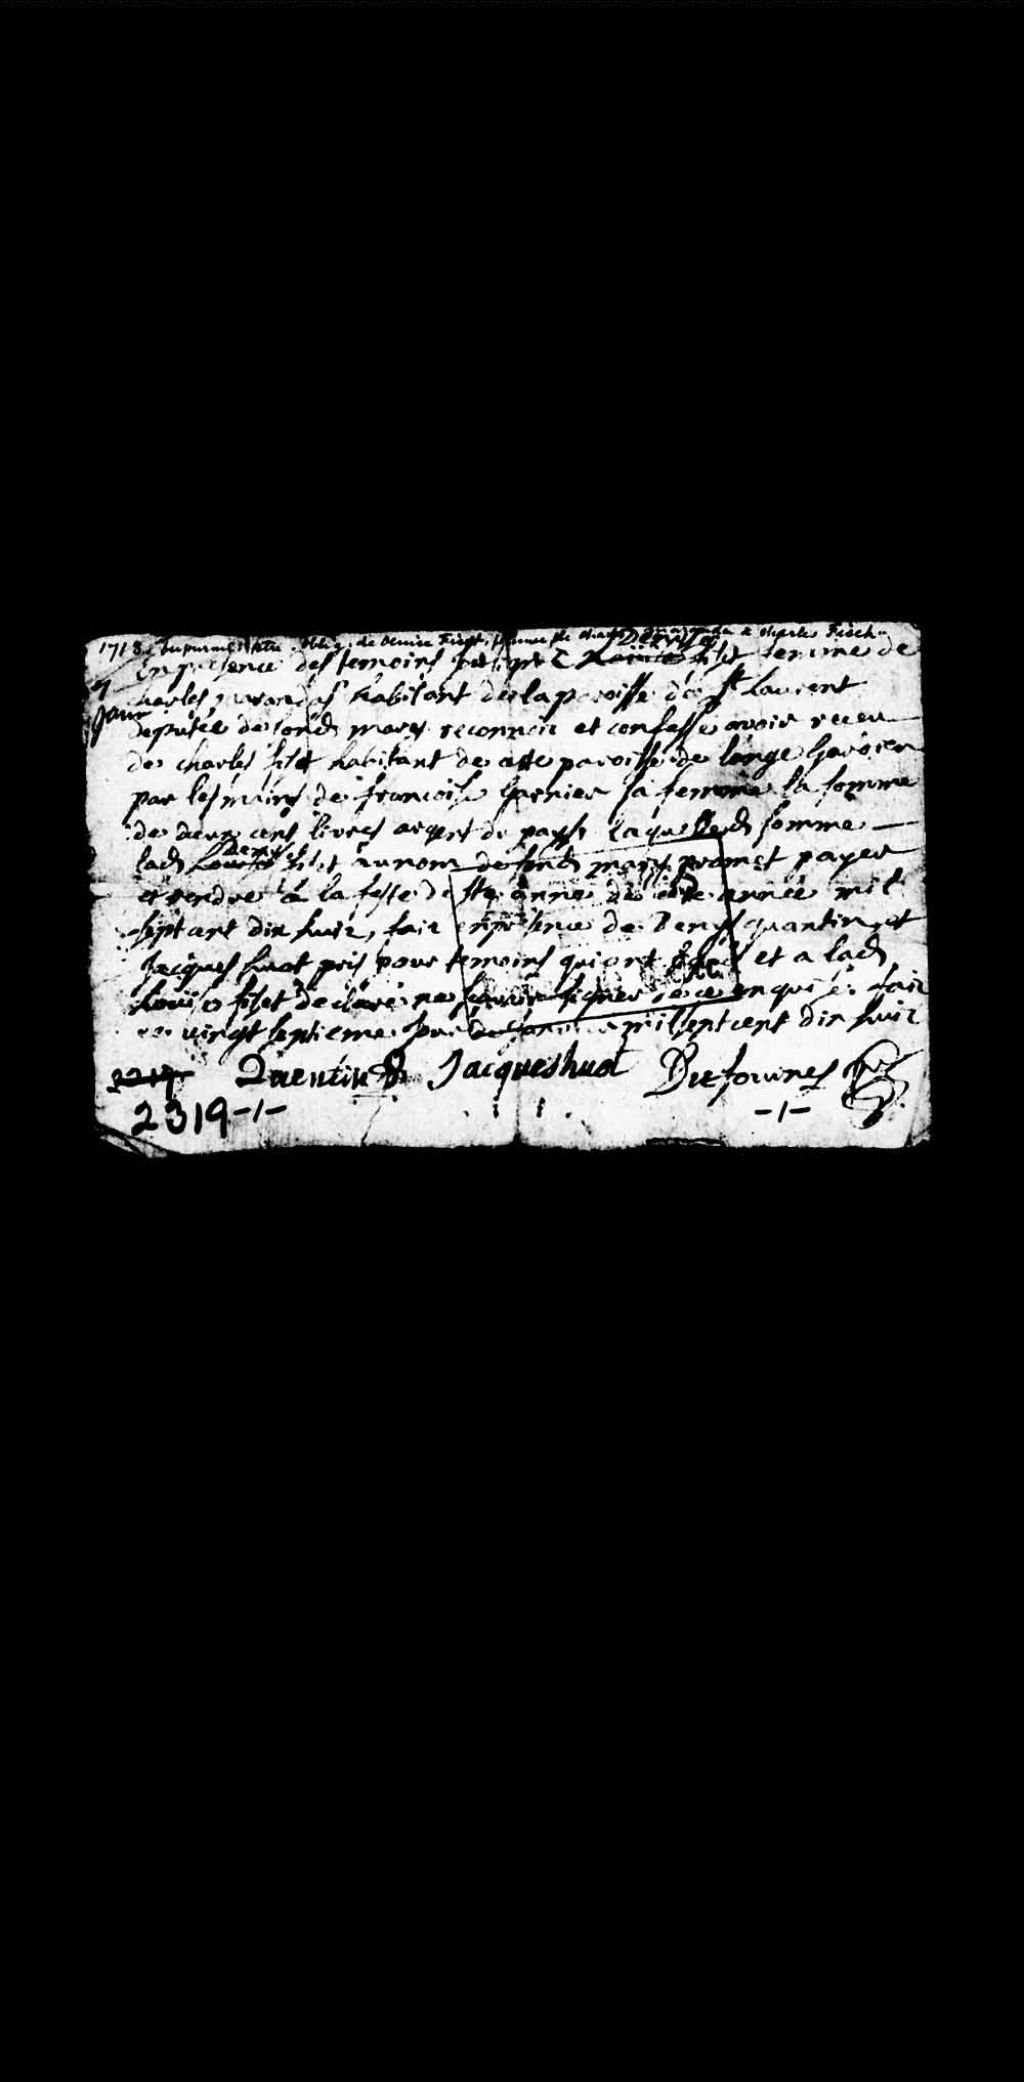 1718
En presence des temoins Denise filet femme de
charles habitant de la paroisse de St Laurent
deputée de sond mary reconnoit et confesse avoir receu
de charles filet habitant de cette paroisse de lange Gardien
par les mains de francoise Garnier sa femme la somme
de deux cens livres argent du pays laquelled somme
lad Louise Denise filet au nom de sond mary promet payer
et rendre a la feste de Ste anne de cette année mil
sept cent dix huit, fait en presence de Denys quantin et
Jacques huot pris pour temoins qui ont signé et a lad
Louise filet declaré ne scavoir signer de ce enquise fait
ce vingt septieme jour de janvier mil sept cent dix huit
Quentin Jacques huot Dufournel
2319 -1- -1-